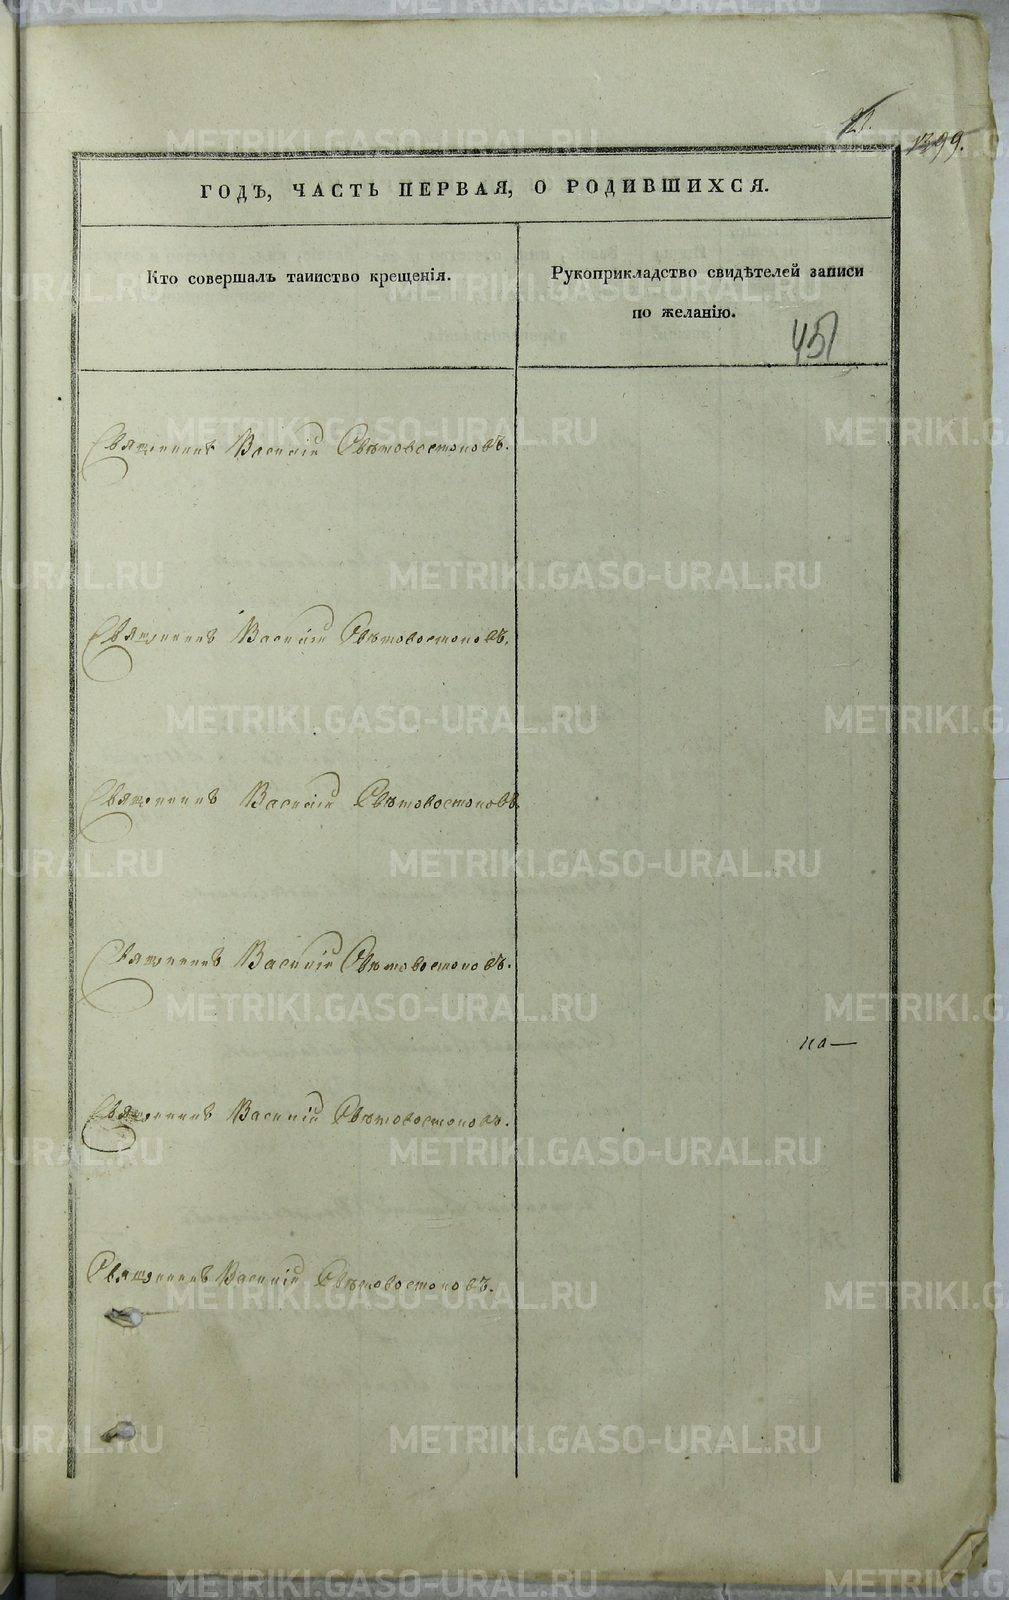 ГОДЪ, ЧАСТЬ ПЕРВАЯ, О РОДИВШИХСЯ.
Кто совершалъ таинство крещенія.
Рукоприкладство свидѣтелей записи
по желанію.
451
Священникъ Василій Свѣтовостоковъ.
Священникъ Василій Свѣтовостоковъ.
Священникъ Василій Свѣтовостоковъ.
Священникъ Василій Свѣтовостоковъ.
на—
Священникъ Василій Свѣтовостоковъ.
Священникъ Василій Свѣтовостоковъ.
METRIKI.GASO-URAL.RU